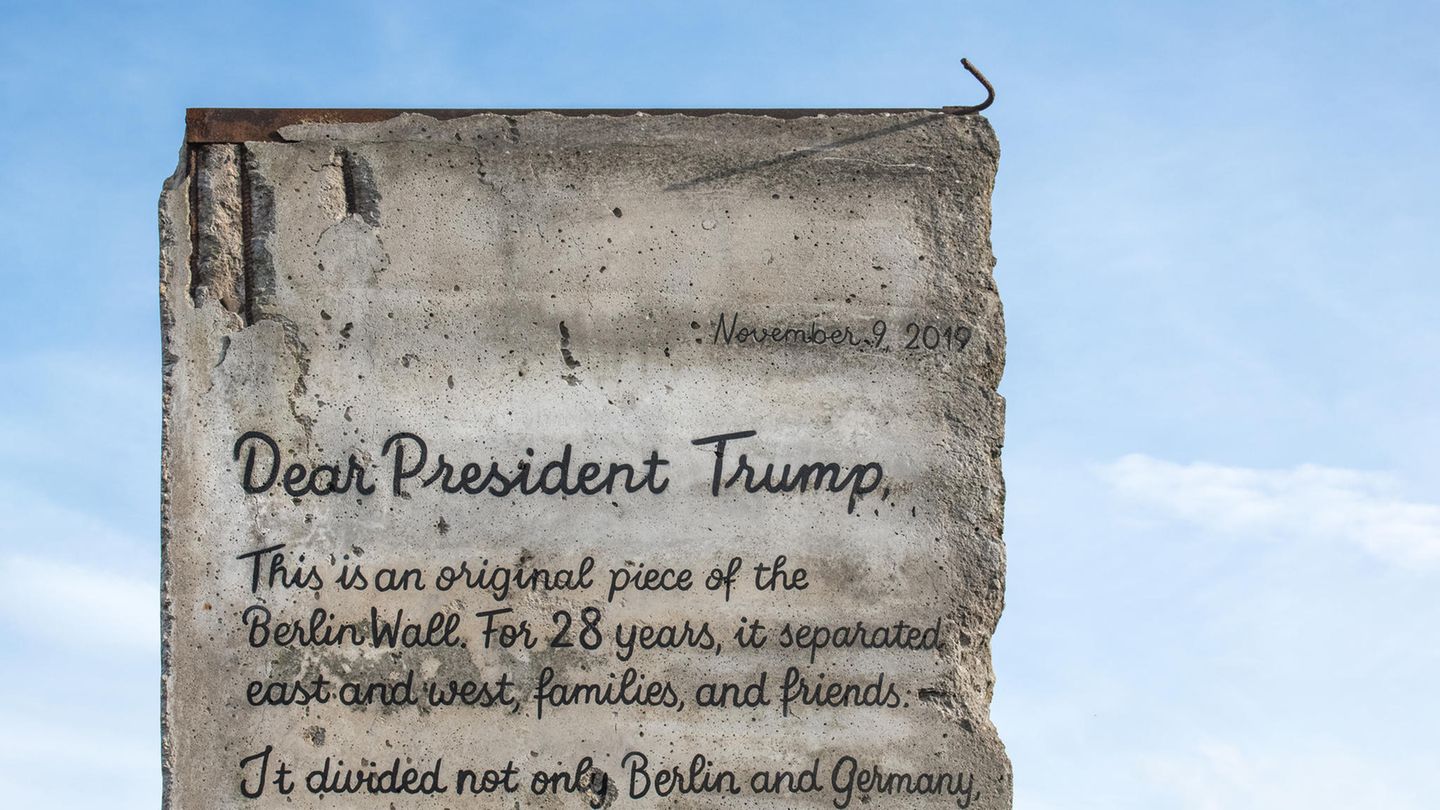 November 9, 2019
Dear President Trump,
This is an original piece of the
Berlin Wall. For 28 years, it separated
east and west, families, and friends.
It divided not only Berlin and Germany,